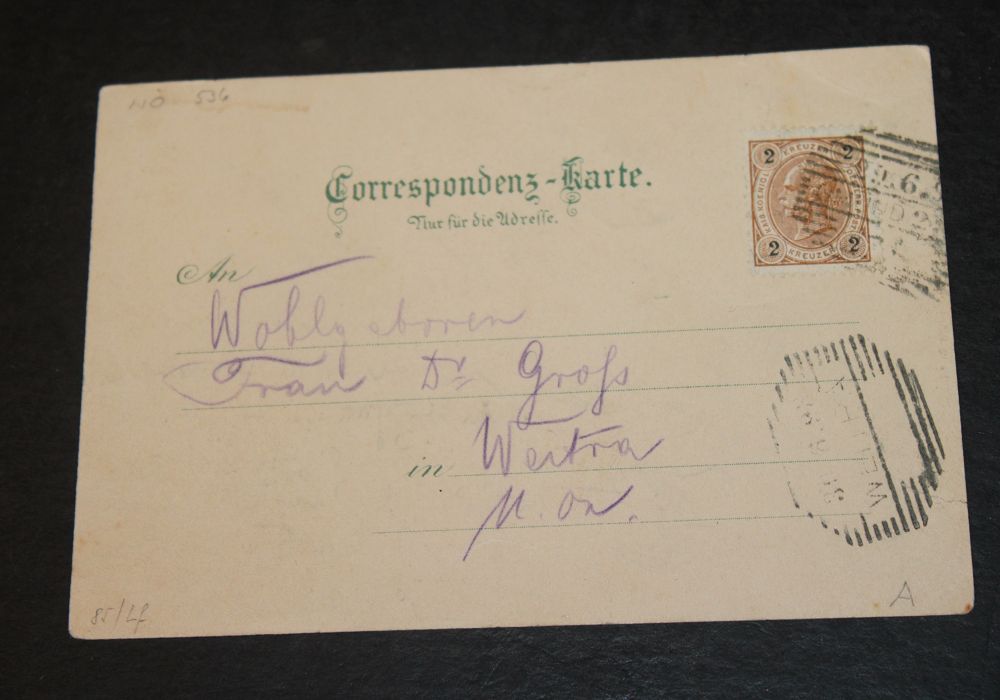 110 536
Correspondenz-Karte.
Nur für die Adresse.
2 KREUZER 2
2 KREUZER 2
6.
An
Wohlgeboren
Frau Dr Groß
in Weitra
N. Oe.
85/Lf
A